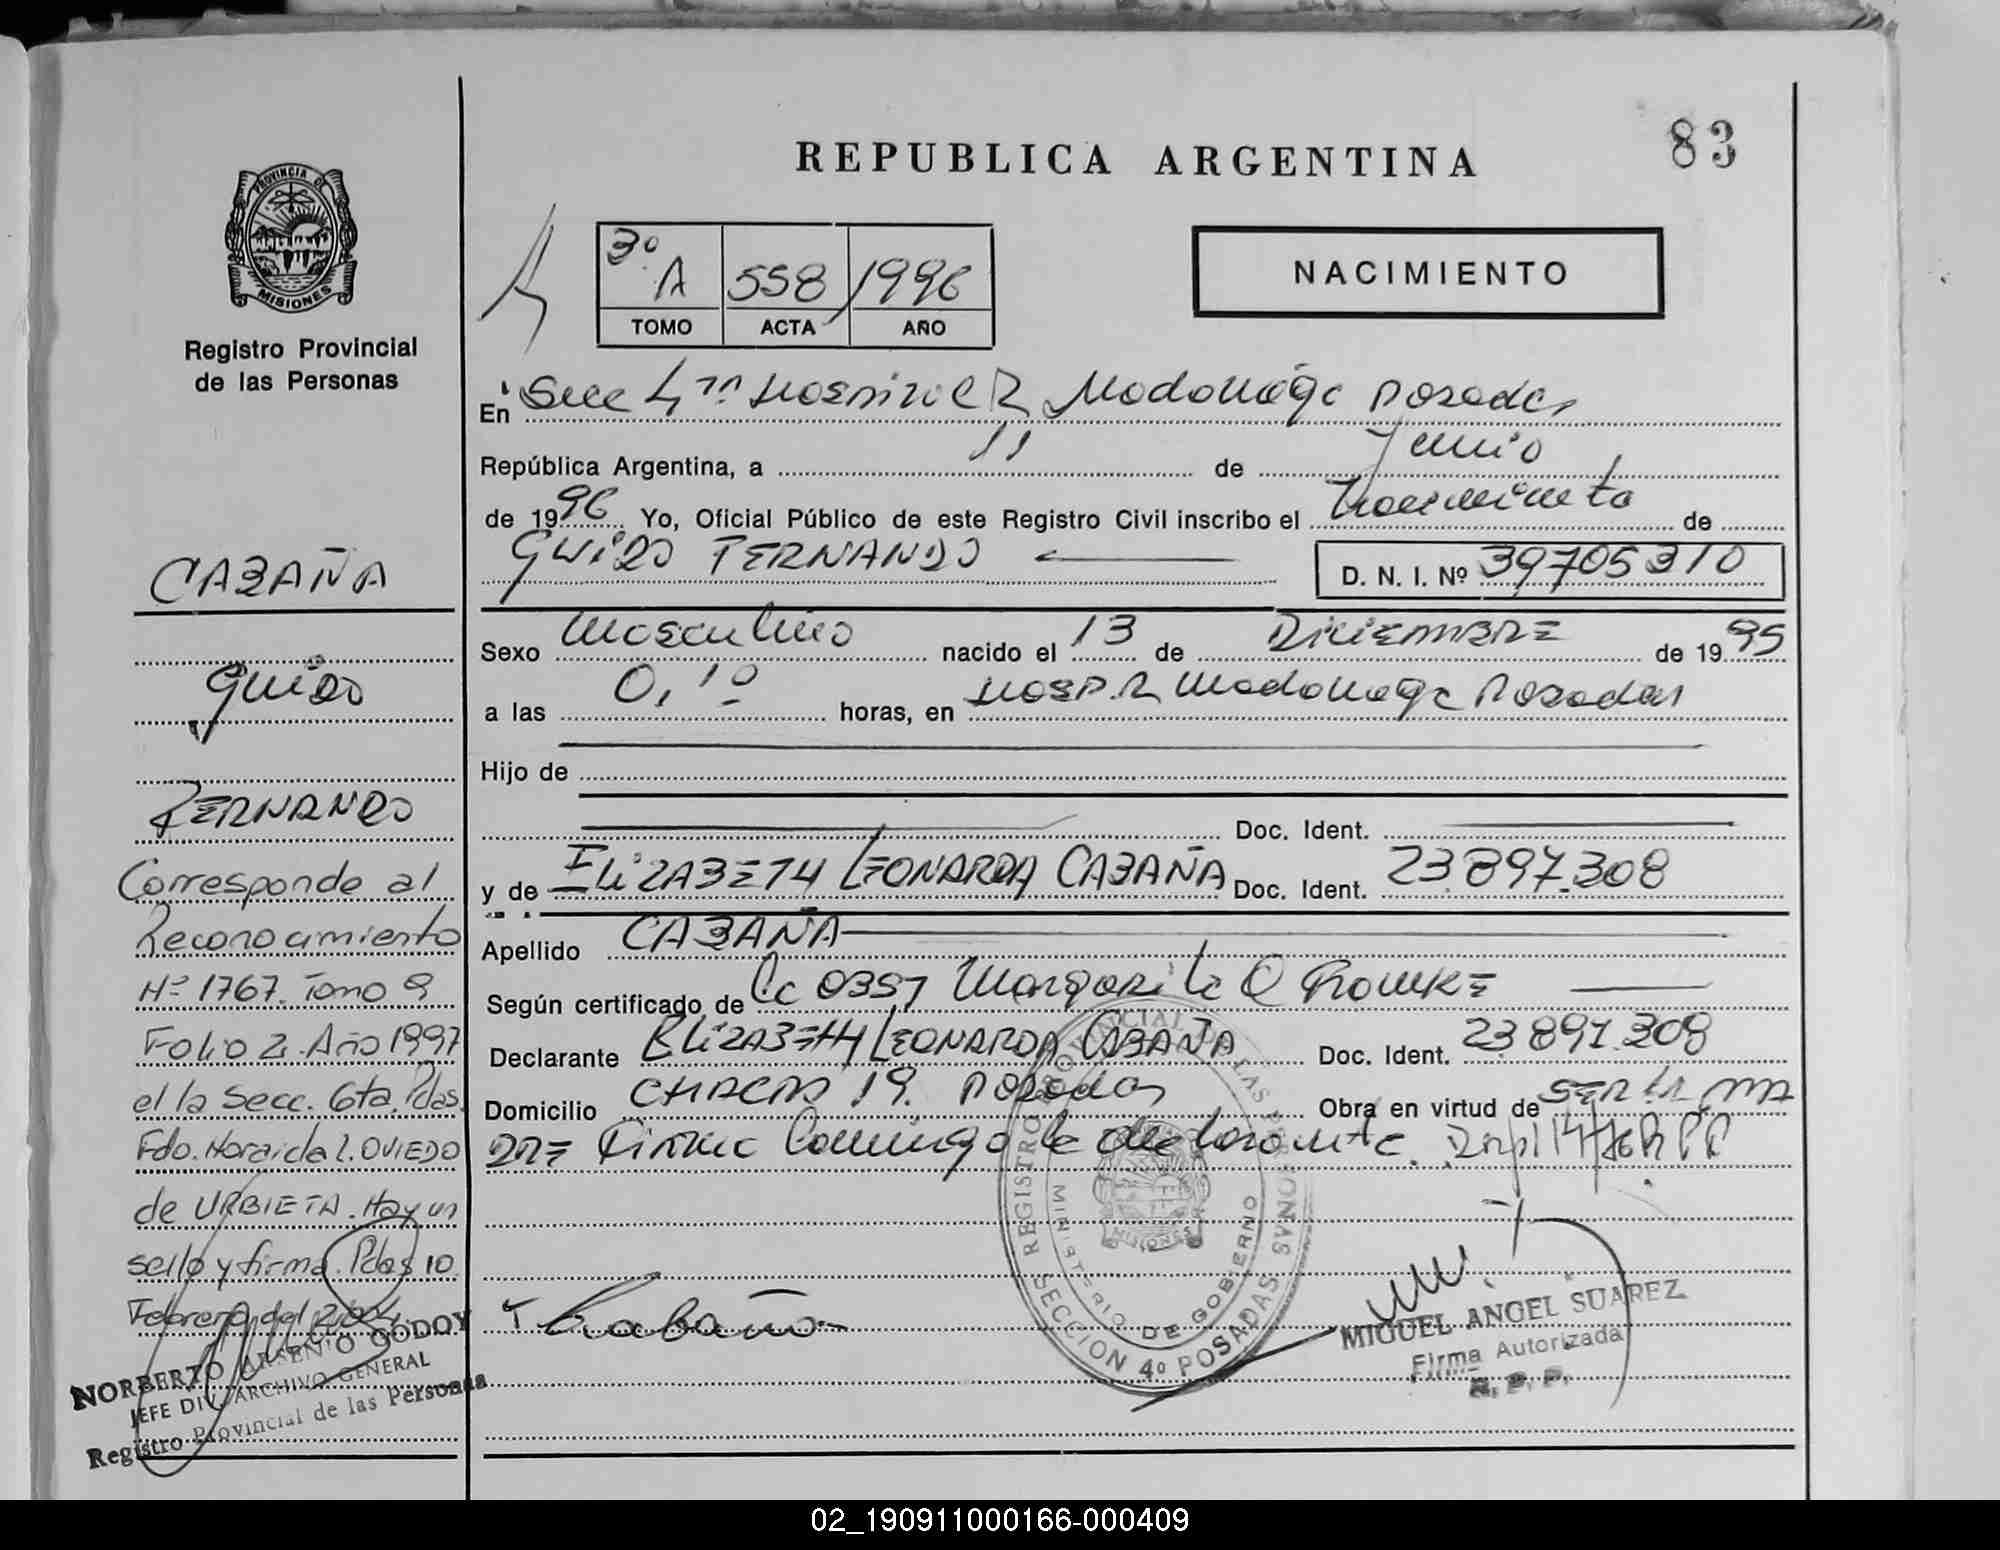 83
REPUBLICA ARGENTINA
PROVINCIA DE
MISIONES
Registro Provincial
de las Personas
3º A 558 1996
TOMO ACTA AÑO
NACIMIENTO
En Secc 4ta Hospital R Madariaga Posadas
República Argentina, a 11 de Junio
de 1996 Yo, Oficial Público de este Registro Civil inscribo el Nacimiento de
GUIDO FERNANDO
D. N. I. Nº 39705310
Sexo Masculino nacido el 13 de DICIEMBRE de 1995
a las 0,10 horas, en HOSP. R Madariaga Posadas
Hijo de
Doc. Ident.
y de ELIZABETH LEONARDA CABAÑA Doc. Ident. 23.897.308
Apellido CABAÑA
Según certificado de Margarita
Declarante ELIZABETH LEONARDA CABAÑA Doc. Ident. 23.897.308
Domicilio CHACRA 19. Posadas Obra en virtud de SER LA MA
DRE Firma Conmigo la declarante.
Cabaña
REGISTRO PROVINCIAL DE LAS PERSONAS
MINISTERIO DE GOBIERNO
MISIONES
SECCION 4º POSADAS
MIGUEL ANGEL SUAREZ
Firma Autorizada
R. P. P.
CABAÑA
GUIDO
FERNANDO
Corresponde al
Reconocimiento
Nº 1767. Tomo 9
Folio 2. Año 1997
el la Secc. 6ta. Pdas.
Fdo. Horaida L. OVIEDO
de URBIETA. Hay un
sello y firma. Pdas 10
Febrero del
NORBERTO ARSENIO GODOY
JEFE DIV. ARCHIVO GENERAL
Registro Provincial de las Personas
02_190911000166-000409